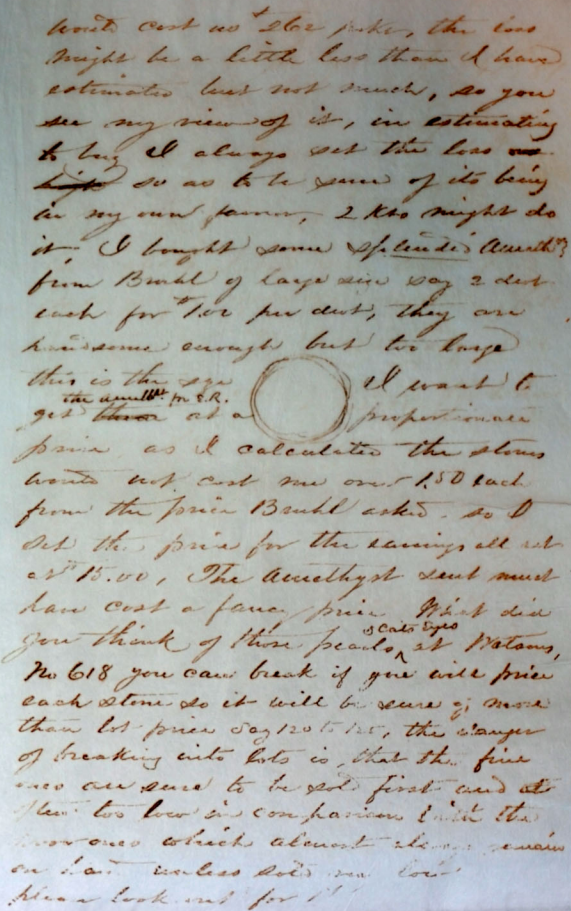 would cost not 262 the loss
might be a little less than I have
estimated but not much, so you
see my view of it, in estimating
to buy I always set the loss
high so as to be sure of its being
in my own favor, 2 Kts might do
it, I bought some splendid Ameth
from Bruhl of large size say 2 dwt
each for 1.00 per dwt, they are
handsome enough but too large
this is the size I want to
the ameth for E.R.
get those at a proportionate
price as I calculated the stones
would not cost me over 1.50 each
from the price Bruhl asked. so I
set the price for the earrings all set
at $15.00, The Amethyst sent must
have cost a fancy price What did
& Cats Eyes
you think of those pearls, at Watsons,
No 618 you can break if you will price
each stone so it will be sure of more
than lot price say 120 to 125, the danger
of breaking into lots is, that the fine
ones are sure to be sold first and at
too low in comparison with the
poor ones which almost always remain
on hand unless sold low
please look out for